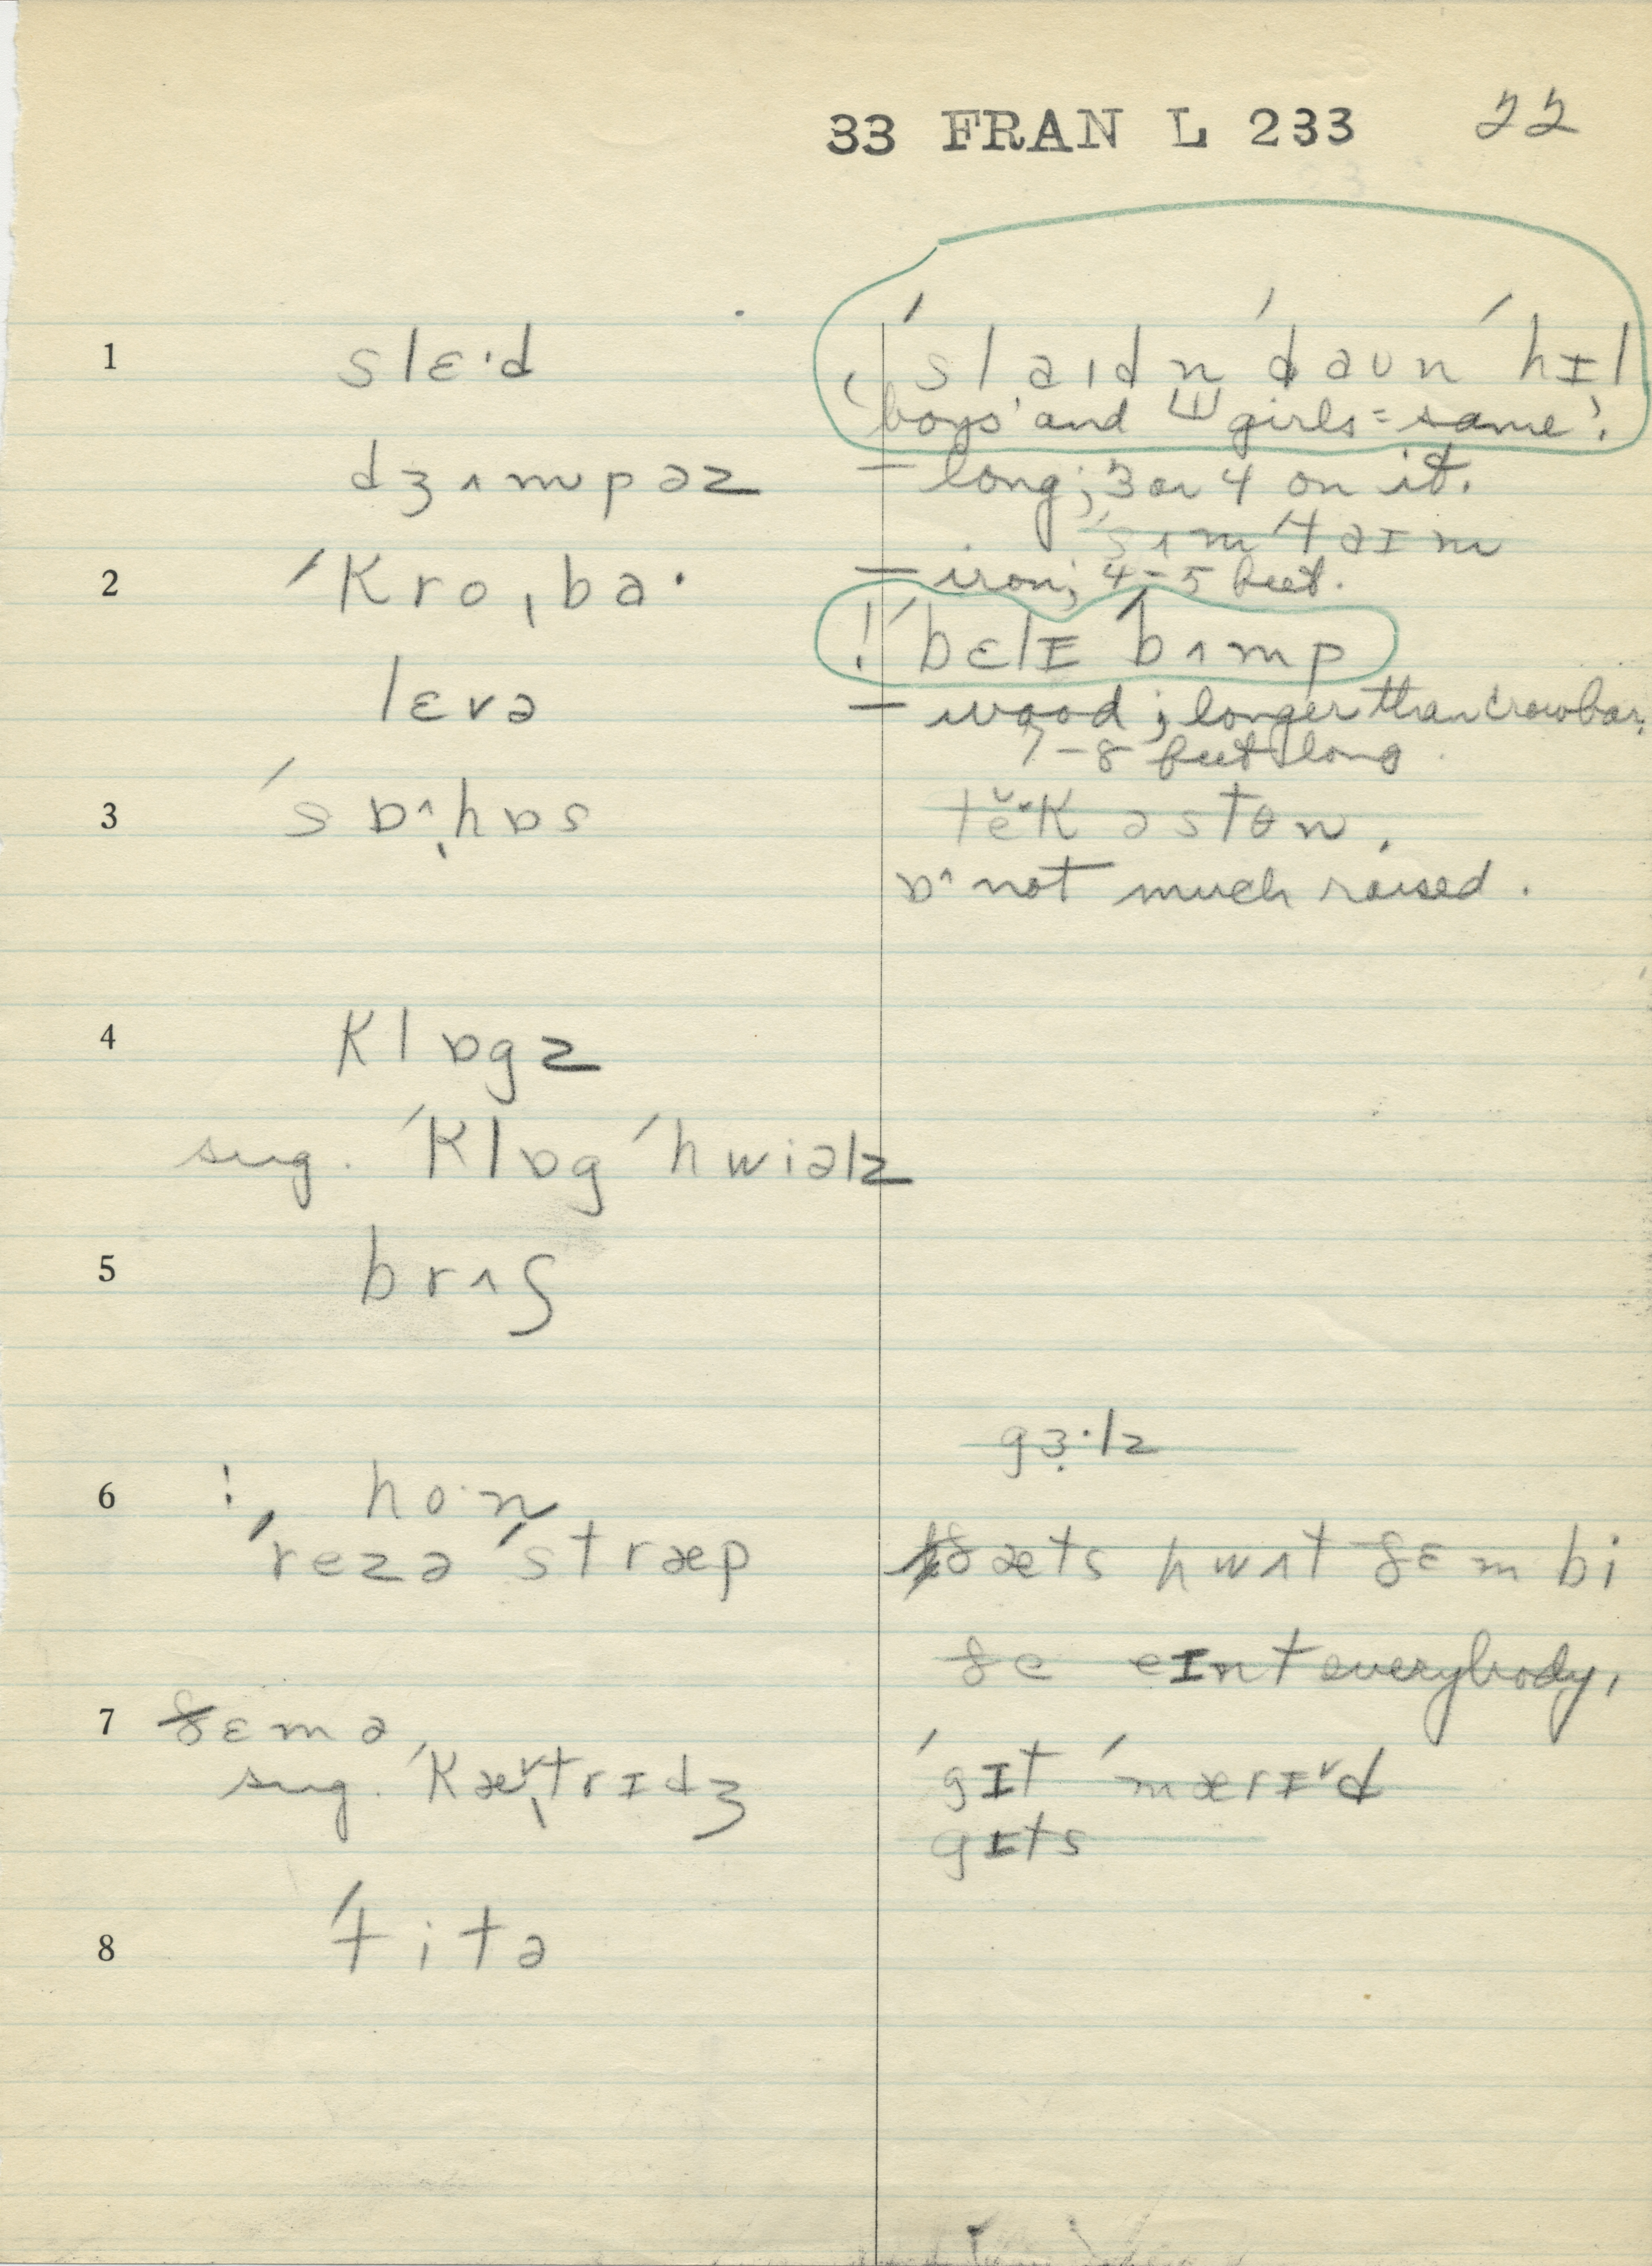 33 FRAN L 233 22
1 slɛ·d ˈslaɪdn ˈdaun ˈhɪl
‘boys’ and girls = same’.
dʒʌmpəz – long; 3 or 4 on it.
ˈsʌmˈtaɪm
2 ˈkroˌba· – iron; 4–5 feet.
! ˈbɛlɪ ˈbʌmp
lɛvə – wood; longer than crowbar.
7–8 feet long.
3 ˈsɒ^ˌhɒs
ɒ^ not much raised.
4 klɒgz
sug. ˈklɒg ˈhwiəlz
5 brʌʃ
gɜ·lz
6 ! ho·n
ˈrezə ˈstræp ðæts hwʌt ðɛm bi
ðe eɪnt everybody,
7 ðɛmə
sug. ˈkæˌtrɪdʒ ˈgɪt ˈmærɪd
gɪts
8 ˈtitə